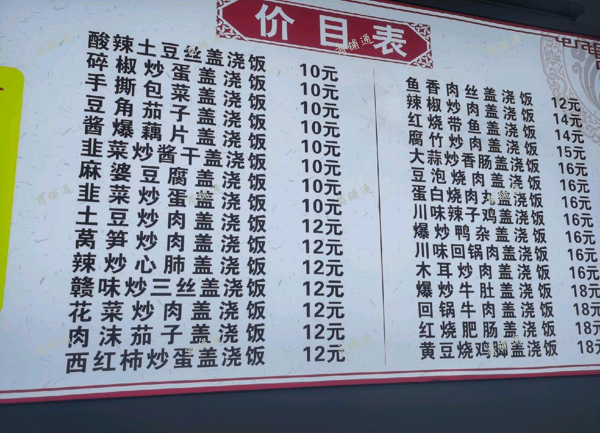 价目表
酸辣土豆丝盖浇饭 10元
碎椒炒蛋盖浇饭 10元
手撕包菜盖浇饭 10元
豆角茄子盖浇饭 10元
酱爆藕片盖浇饭 10元
韭菜炒酱干盖浇饭 10元
麻婆豆腐盖浇饭 10元
韭菜炒蛋盖浇饭 10元
土豆炒肉盖浇饭 12元
莴笋炒肉盖浇饭 12元
辣炒心肺盖浇饭 12元
赣味炒三丝盖浇饭 12元
花菜炒肉盖浇饭 12元
肉沫茄子盖浇饭 12元
西红柿炒蛋盖浇饭 12元
鱼香肉丝盖浇饭 12元
辣椒炒肉盖浇饭 14元
红烧带鱼盖浇饭 14元
腐竹炒肉盖浇饭 15元
大蒜炒香肠盖浇饭 16元
豆泡烧肉盖浇饭 16元
蛋白烧肉丸盖浇饭 16元
川味辣子鸡盖浇饭 16元
爆炒鸭杂盖浇饭 16元
川味回锅肉盖浇饭 16元
木耳炒肉盖浇饭 16元
爆炒牛肚盖浇饭 18元
回锅牛肉盖浇饭 18元
红烧肥肠盖浇饭 18元
黄豆烧鸡脚盖浇饭 18元